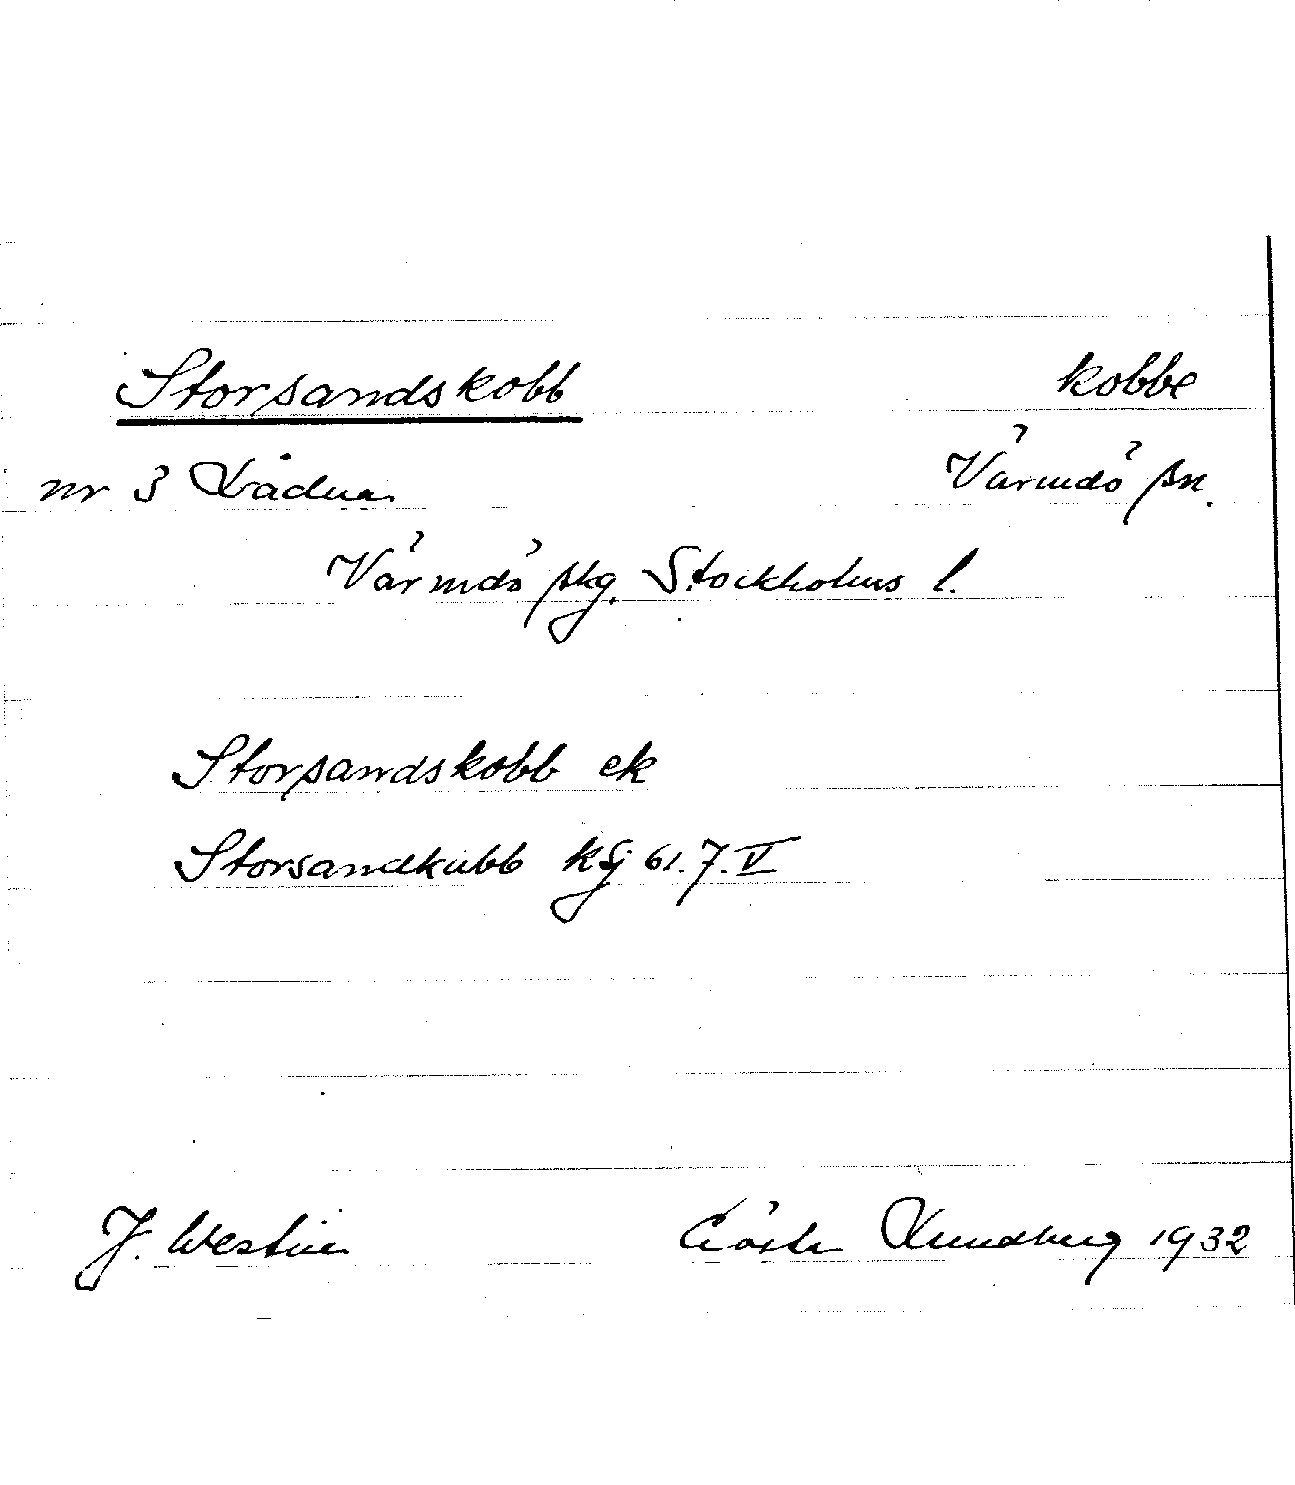 Storsandskobb kobbe
nr 3 Lådna Värmdö sn.
Värmdö skg. Stockholms l.
Storsandskobb ek
Storsandkubb kSj 61.7.V
J. Westin
Gösta Lundberg 1932